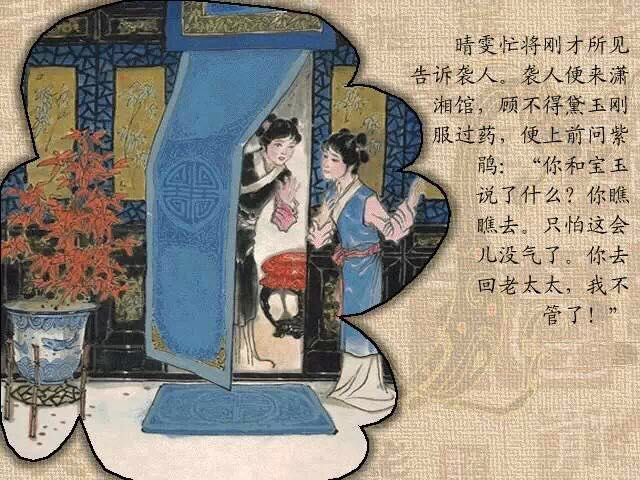 晴雯忙将刚才所见
告诉袭人。袭人便来潇
湘馆，顾不得黛玉刚
服过药，便上前问紫
鹃：“你和宝玉
说了什么？你瞧
瞧去。只怕这会
儿没气了。你去
回老太太，我不
管了！”